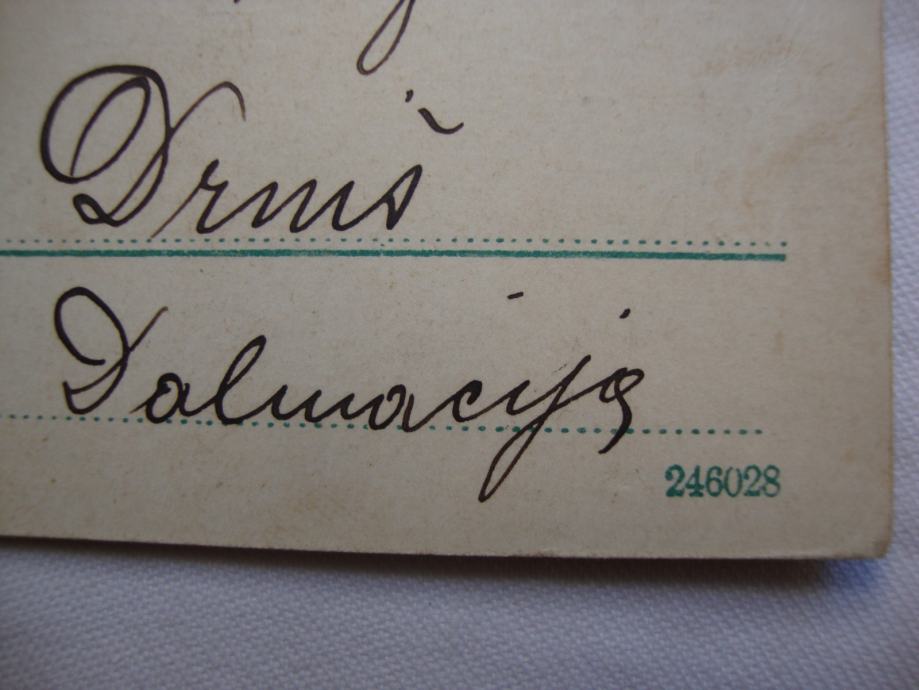 Drniš
Dalmacija
246028